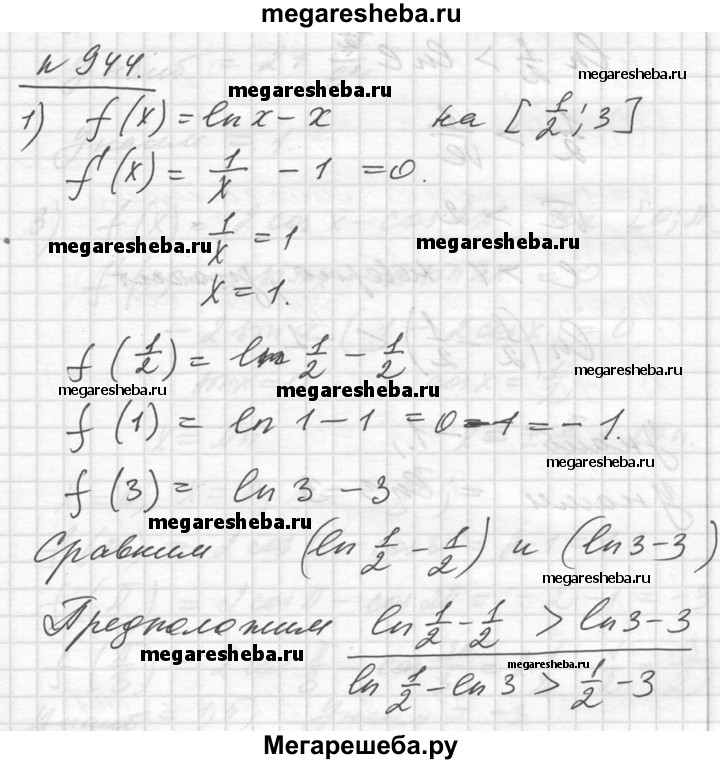 megaresheba.ru
n 944.
megaresheba.ru
megaresheba.ru
1) f(x) = ln x - x на [1/2; 3]
f'(x) = 1/x - 1 = 0.
1/x = 1
megaresheba.ru
megaresheba.ru
x = 1.
f(1/2) = ln 1/2 - 1/2
megaresheba.ru
megaresheba.ru
megaresheba.ru
f(1) = ln 1 - 1 = 0 - 1 = - 1.
megaresheba.ru
f(3) = ln 3 - 3
megaresheba.ru
Сравним (ln 1/2 - 1/2) и (ln 3 - 3)
megaresheba.ru
Предположим ln 1/2 - 1/2 > ln 3 - 3
megaresheba.ru
megaresheba.ru
ln 1/2 - ln 3 > 1/2 - 3
Мегарешеба.ру